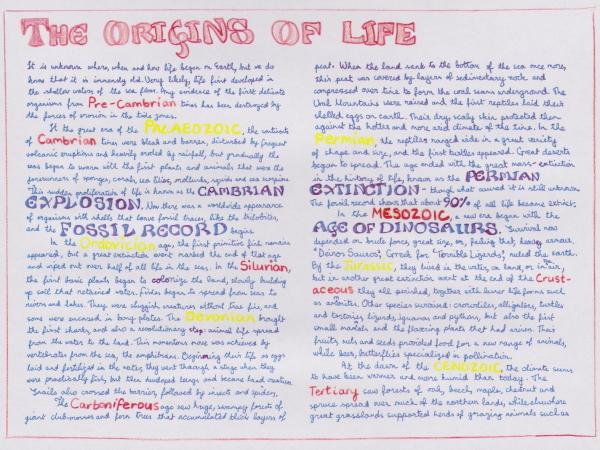 The Origins of Life
It is unknown where, when and how life began on Earth, but we do
know that it is immensely old. Very likely, life first developed in
the shallow waters of the sea floor. Any evidence of the first delicate
organisms from Pre-Cambrian times has been destroyed by
the forces of erosion in the time gones.
It the great era of the PALAEOZOIC, the continents
of Cambrian times were bleak and barren, disturbed by frequent
volcanic eruptions and heavily eroded by rainfall, but gradually the
seas began to swarm with the first plants and animals that were the
forerunners of sponges, corals, sea lilies, molluscs, squids and sea scorpions.
This sudden proliferation of life is known as the CAMBRIAN
EXPLOSION. Now there was a worldwide appearance
of organisms with shells that leave fossil traces, like the trilobites,
and the FOSSIL RECORD begins.
In the Ordovician age, the first primitive fish remains
appeared, but a great extinction event marked the end of that age
and wiped out over half of all life in the seas. In the Silurian,
the first basic plants began to colonize the land, slowly building
up soil that retained water, fishes began to spread from seas to
rivers and lakes. They were sluggish creatures without true fins, and
some were encased in bony plates. The Devonian brought
the first sharks, and also a revolutionary step: animal life spread
from the water to the land. This momentous move was achieved by
vertebrates from the sea, the amphibians. Beginning their life as eggs
laid and fertilized in the water, they went through a stage when they
were practically fish, but then developed lungs and became land creatures.
Snails also crossed the barrier, followed by insects and spiders.
The Carboniferous age saw huge, swampy forests of
giant club-mosses and fern trees that accumulated thick layers of
peat. When the land sank to the bottom of the sea once more,
this peat was covered by layers of sedimentary rock and
compressed over time to form the coal seams underground. The
Ural Mountains were raised and the first reptiles laid their
shelled eggs on earth. Their dry, scaly skin protected them
against the hotter and more arid climate of the time. In the
Permian, the reptiles ranged wide in a great variety
of shape and size, and the first turtles appeared. Great deserts
began to spread. The age ended with the great mass-extinction
in the history of life, known as the PERMIAN
EXTINCTION - though what caused it is still unknown.
The fossil record shows that about 90% of all life became extinct.
In the MESOZOIC, a new era began with the
AGE OF DINOSAURS. Survival now
depended on brute force, great size, or, failing that, heavy armour.
"Deinos Sauros", Greek for "Terrible Lizards", ruled the earth.
By the Jurassic, they lived in the water, on land, or in air,
but in another great extinction event at the end of the Cret-
aceous they all perished, together with lower life forms such
as ammonites. Other species survived: crocodiles, alligators, turtles
and tortoises, lizards, iguanas and pythons, but also the first
small mammals and the flowering plants that had arisen. Their
fruits, nuts and seeds provided food for a new range of animals,
while bees, butterflies specialized in pollination.
At the dawn of the CENOZOIC, the climate seems
to have been warmer and more humid than today. The
Tertiary saw forests of oak, beech, maple, chestnut and
spruce spread over much of the northern lands, while elsewhere
great grasslands supported herds of grazing animals such as